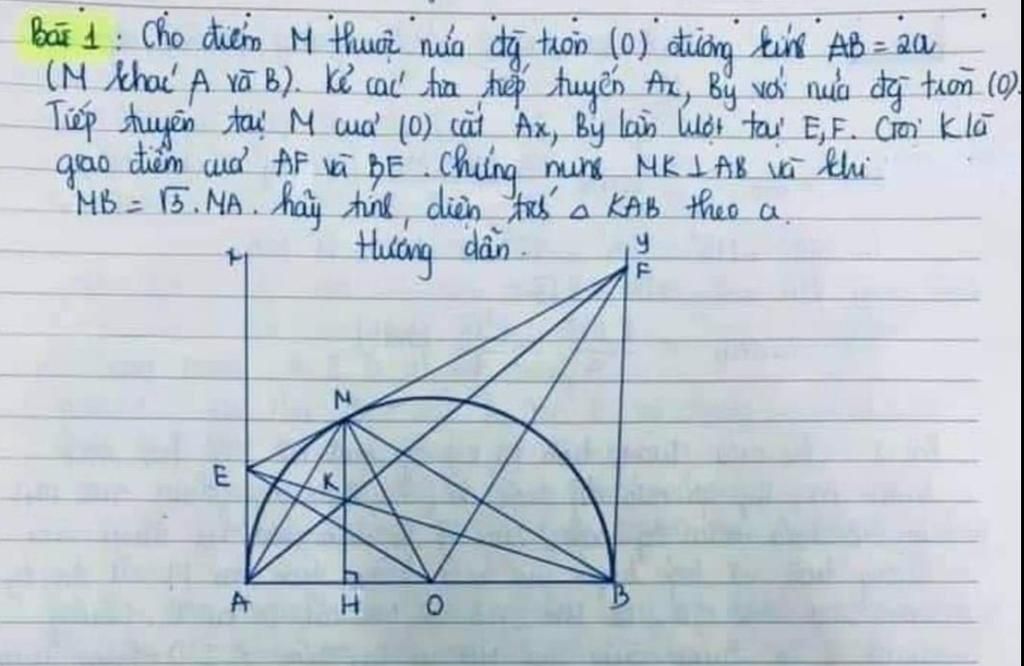 Bài 1: Cho điểm M thuộc nửa đg̃ tròn (O) đường kính AB = 2a
(M khác A và B). Kẻ các tia tiếp tuyến Ax, By với nửa đg̃ tròn (O).
Tiếp tuyến tại M của (O) cắt Ax, By lần lượt tại E, F. Gọi K là
giao điểm của AF và BE. Chứng minh MK ⊥ AB và khi
MB = √3.MA. hãy tính, diện tích △ KAB theo a.
Hướng dẫn.
x
y
F
M
E
K
A
H
O
B